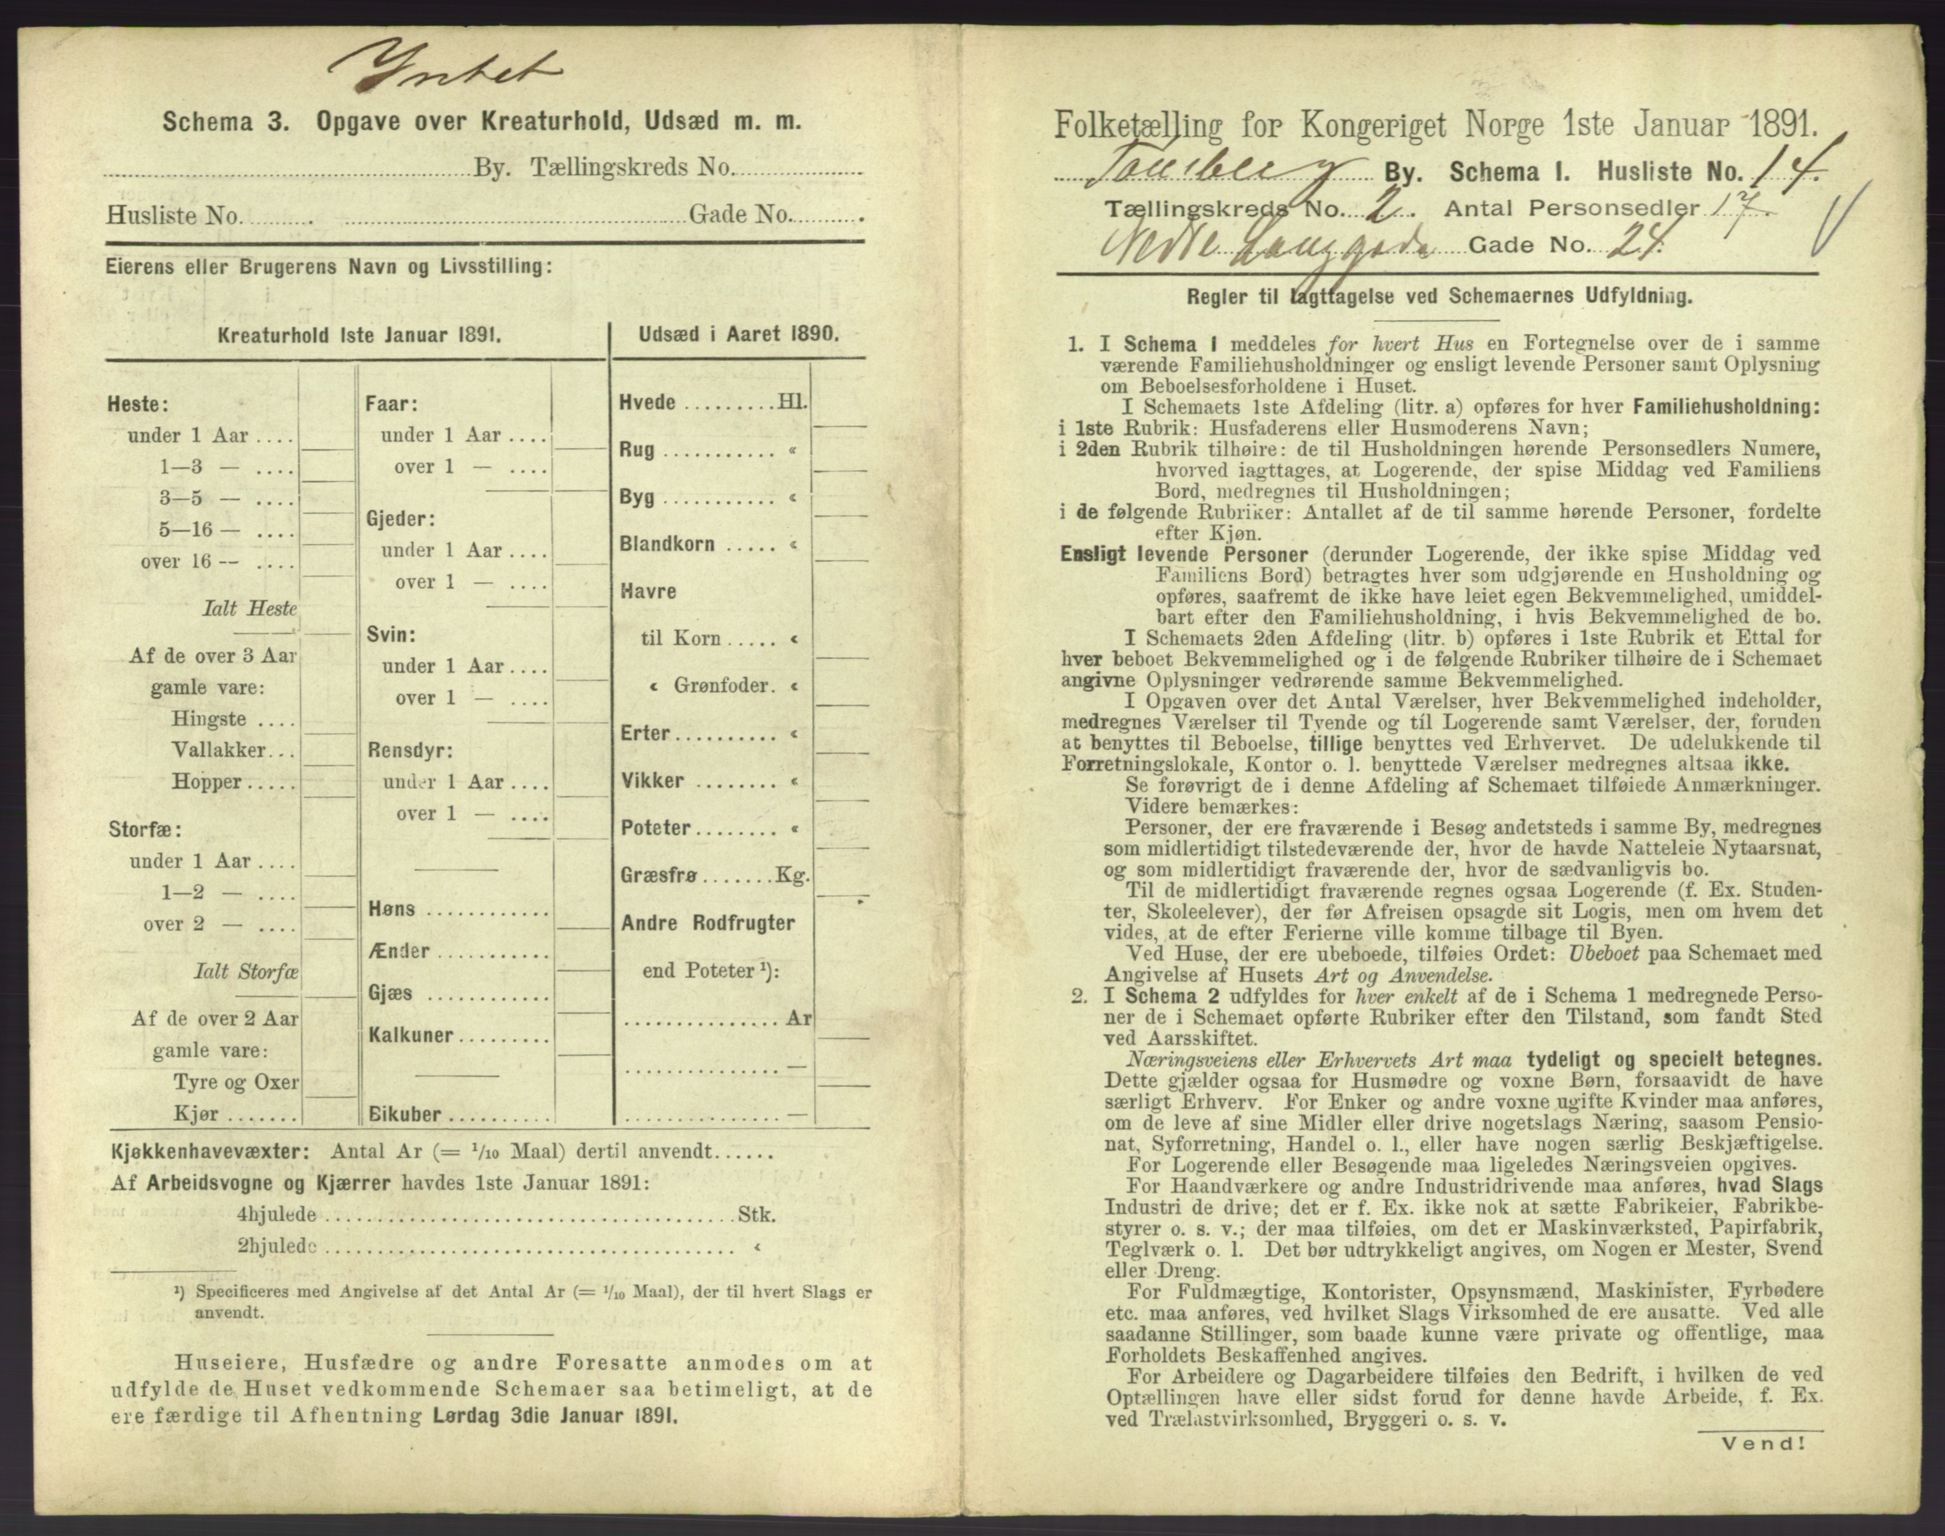 Yntet
Schema 3. Opgave over Kreaturhold, Udsæd m. m.
By. Tællingskreds No.
Husliste No. Gade No.
Eierens eller Brugerens Navn og Livsstilling:
Kreaturhold 1ste Januar 1891.
Heste:
under 1 Aar ....
1—3 — ....
3—5 — ....
5—16 — ....
over 16 — ....
Ialt Heste
Af de over 3 Aar
gamle vare:
Hingste ....
Vallakker...
Hopper.....
Storfæ:
under 1 Aar ....
1—2 — ....
over 2 — ....
Ialt Storfæ
Af de over 2 Aar
gamle vare:
Tyre og Oxer
Kjør .......
Faar:
under 1 Aar ....
over 1 — ....
Gjeder:
under 1 Aar ....
over 1 — ....
Svin:
under 1 Aar ....
over 1 — ....
Rensdyr:
under 1 Aar ....
over 1 — ....
Høns ............
Ænder ...........
Gjæs ............
Kalkuner.........
Bikuber ..........
Udsæd i Aaret 1890.
Hvede .........Hl.
Rug ........... «
Byg ........... «
Blandkorn ..... «
Havre
til Korn ..... «
« Grønfoder. «
Erter.......... «
Vikker ........ «
Poteter........ «
Græsfrø.......Kg.
Andre Rodfrugter
end Poteter ¹):
...............Ar
...............—
...............—
Kjøkkenhavevæxter: Antal Ar (= 1/10 Maal) dertil anvendt......
Af Arbeidsvogne og Kjærrer havdes 1ste Januar 1891:
4hjulede .......................................Stk.
2hjulede ....................................... «
¹) Specificeres med Angivelse af det Antal Ar (= 1/10 Maal), der til hvert Slags er
anvendt.
Huseiere, Husfædre og andre Foresatte anmodes om at
udfylde de Huset vedkommende Schemaer saa betimeligt, at de
ere færdige til Afhentning Lørdag 3die Januar 1891.
Folketælling for Kongeriget Norge 1ste Januar 1891.
Tønsberg By. Schema I. Husliste No. 14.
Tællingskreds No. 2. Antal Personsedler 17.
Nedre Langgade Gade No. 24.
Regler til Iagttagelse ved Schemaernes Udfyldning.
1. I Schema I meddeles for hvert Hus en Fortegnelse over de i samme
værende Familiehusholdninger og ensligt levende Personer samt Oplysning
om Beboelsesforholdene i Huset.
I Schemaets 1ste Afdeling (litr. a) opføres for hver Familiehusholdning:
i 1ste Rubrik: Husfaderens eller Husmoderens Navn;
i 2den Rubrik tilhøire: de til Husholdningen hørende Personsedlers Numere,
hvorved iagttages, at Logerende, der spise Middag ved Familiens
Bord, medregnes til Husholdningen;
i de følgende Rubriker: Antallet af de til samme hørende Personer, fordelte
efter Kjøn.
Ensligt levende Personer (derunder Logerende, der ikke spise Middag ved
Familiens Bord) betragtes hver som udgjørende en Husholdning og
opføres, saafremt de ikke have leiet egen Bekvemmelighed, umiddel-
bart efter den Familiehusholdning, i hvis Bekvemmelighed de bo.
I Schemaets 2den Afdeling (litr. b) opføres i 1ste Rubrik et Ettal for
hver beboet Bekvemmelighed og i de følgende Rubriker tilhøire de i Schemaet
angivne Oplysninger vedrørende samme Bekvemmelighed.
I Opgaven over det Antal Værelser, hver Bekvemmelighed indeholder,
medregnes Værelser til Tyende og til Logerende samt Værelser, der, foruden
at benyttes til Beboelse, tillige benyttes ved Erhvervet. De udelukkende til
Forretningslokale, Kontor o. l. benyttede Værelser medregnes altsaa ikke.
Se forøvrigt de i denne Afdeling af Schemaet tilføiede Anmærkninger.
Videre bemærkes:
Personer, der ere fraværende i Besøg andetsteds i samme By, medregnes
som midlertidigt tilstedeværende der, hvor de havde Natteleie Nytaarsnat,
og som midlertidigt fraværende der, hvor de sædvanligvis bo.
Til de midlertidigt fraværende regnes ogsaa Logerende (f. Ex. Studen-
ter, Skoleelever), der før Afreisen opsagde sit Logis, men om hvem det
vides, at de efter Ferierne ville komme tilbage til Byen.
Ved Huse, der ere ubeboede, tilføies Ordet: Ubeboet paa Schemaet med
Angivelse af Husets Art og Anvendelse.
2. I Schema 2 udfyldes for hver enkelt af de i Schema 1 medregnede Perso-
ner de i Schemaet opførte Rubriker efter den Tilstand, som fandt Sted
ved Aarsskiftet.
Næringsveiens eller Erhvervets Art maa tydeligt og specielt betegnes.
Dette gjælder ogsaa for Husmødre og voxne Børn, forsaavidt de have
særligt Erhverv. For Enker og andre voxne ugifte Kvinder maa anføres,
om de leve af sine Midler eller drive nogetslags Næring, saasom Pensio-
nat, Syforretning, Handel o. l., eller have nogen særlig Beskjæftigelse.
For Logerende eller Besøgende maa ligeledes Næringsveien opgives.
For Haandværkere og andre Industridrivende maa anføres, hvad Slags
Industri de drive; det er f. Ex. ikke nok at sætte Fabrikeier, Fabrikbe-
styrer o. s. v.; der maa tilføies, om det er Maskinværksted, Papirfabrik,
Teglværk o. l. Det bør udtrykkeligt angives, om Nogen er Mester, Svend
eller Dreng.
For Fuldmægtige, Kontorister, Opsynsmænd, Maskinister, Fyrbødere
etc. maa anføres, ved hvilket Slags Virksomhed de ere ansatte. Ved alle
saadanne Stillinger, som baade kunne være private og offentlige, maa
Forholdets Beskaffenhed angives.
For Arbeidere og Dagarbeidere tilføies den Bedrift, i hvilken de ved
Optællingen have eller sidst forud for denne havde Arbeide, f. Ex.
ved Trælastvirksomhed, Bryggeri o. s. v.
Vend!